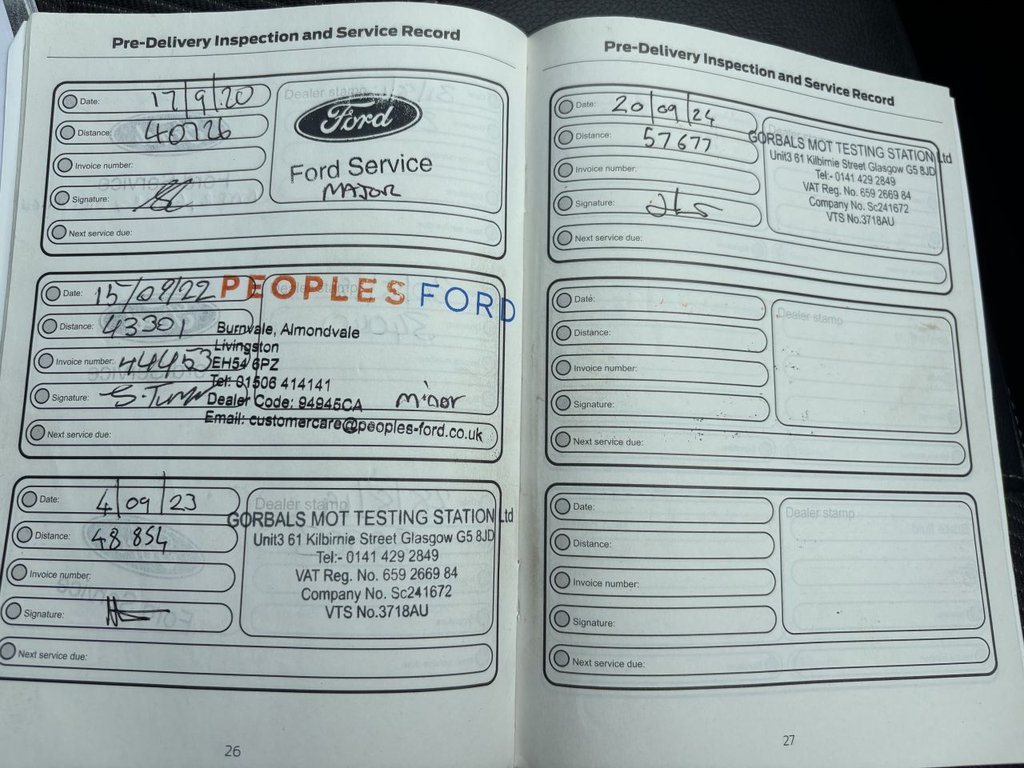 Pre-Delivery Inspection and Service Record
Date: 17/9/20
Dealer stamp
Distance: 40726
Ford
Invoice number:
Ford Service
MAJOR
Signature:
Next service due:
Date: 15/09/22
PEOPLES FORD
Distance: 43301
Burnvale, Almondvale
Livingston
Invoice number: 44453
EH54 6PZ
Tel: 01506 414141
Signature:
Dealer Code: 94945CA
Minor
Email: customercare@peoples-ford.co.uk
Next service due:
Date: 4/09/23
Dealer stamp
GORBALS MOT TESTING STATION Ltd
Distance: 48854
Unit3 61 Kilbirnie Street Glasgow G5 8JD
Tel:- 0141 429 2849
Invoice number:
VAT Reg. No. 659 2669 84
Company No. Sc241672
Signature:
VTS No.3718AU
Next service due:
26
Pre-Delivery Inspection and Service Record
Date: 20/09/24
Dealer stamp
Distance: 57677
GORBALS MOT TESTING STATION Ltd
Unit3 61 Kilbirnie Street Glasgow G5 8JD
Invoice number:
Tel:- 0141 429 2849
VAT Reg. No. 659 2669 84
Signature:
Company No. Sc241672
VTS No.3718AU
Next service due:
Date:
Dealer stamp
Distance:
Invoice number:
Signature:
Next service due:
Date:
Dealer stamp
Distance:
Invoice number:
Signature:
Next service due:
27